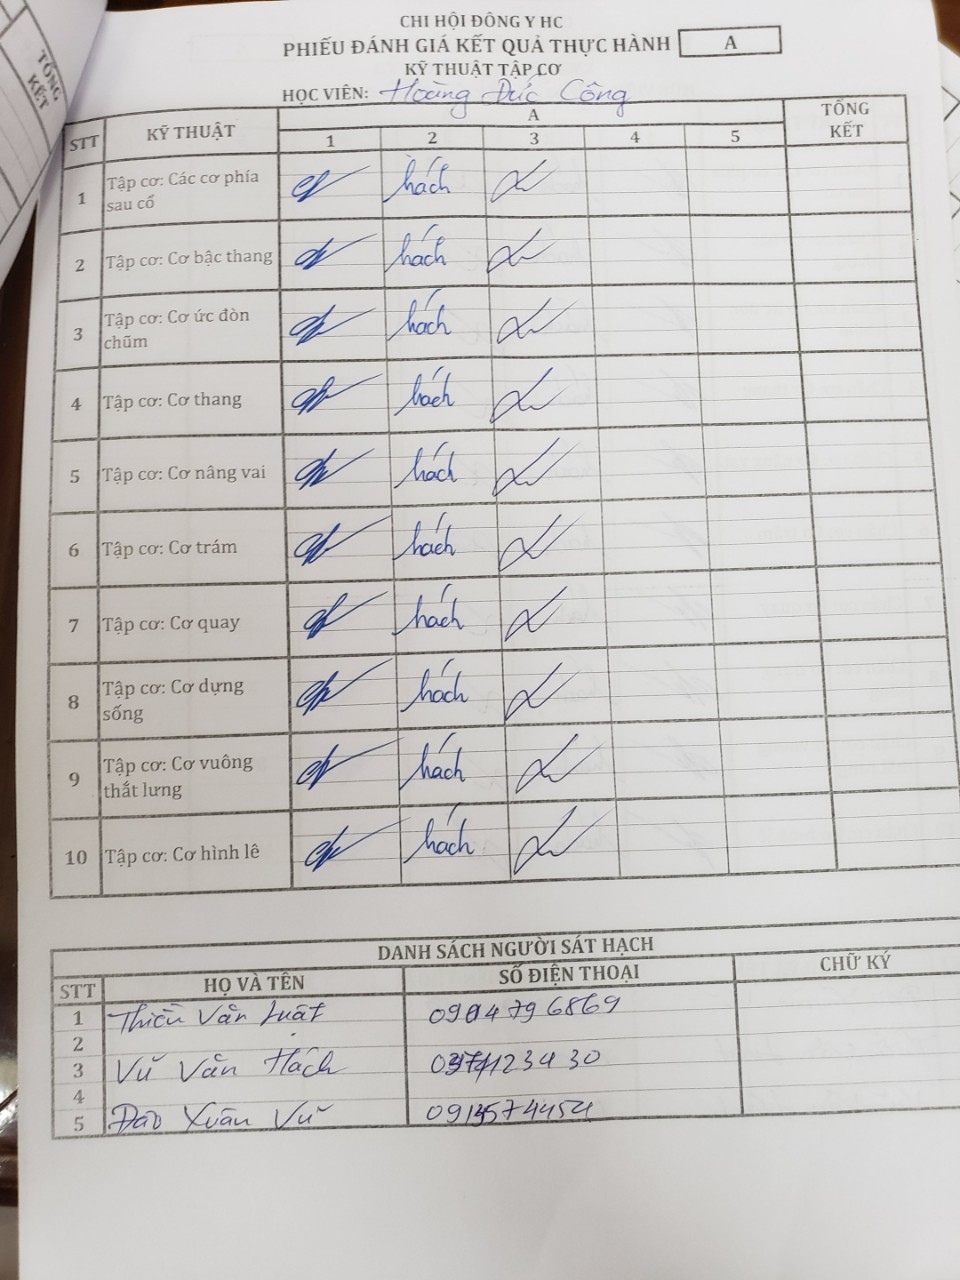 TỔNG
KẾT
CHI HỘI ĐÔNG Y HC
PHIẾU ĐÁNH GIÁ KẾT QUẢ THỰC HÀNH A
KỸ THUẬT TẬP CƠ
HỌC VIÊN: Hoàng Đức Công
STT KỸ THUẬT A TỔNG KẾT
1 2 3 4 5
1 Tập cơ: Các cơ phía sau cổ hách
2 Tập cơ: Cơ bậc thang hách
3 Tập cơ: Cơ ức đòn chũm hách
4 Tập cơ: Cơ thang hách
5 Tập cơ: Cơ nâng vai hách
6 Tập cơ: Cơ trám hách
7 Tập cơ: Cơ quay hách
8 Tập cơ: Cơ dựng sống hách
9 Tập cơ: Cơ vuông thắt lưng hách
10 Tập cơ: Cơ hình lê hách
DANH SÁCH NGƯỜI SÁT HẠCH
STT HỌ VÀ TÊN SỐ ĐIỆN THOẠI CHỮ KÝ
1 Thiều Văn Luật
2
3 Vũ Văn Hách
4
5 Đào Xuân Vũ